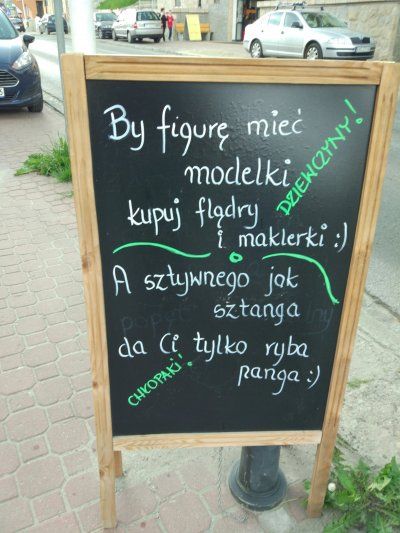 By figurę mieć
modelki
DZIEWCZYNY!
kupuj flądry
i maklerki :)
A sztywnego jak
sztanga
da Ci tylko ryba
panga :)
CHŁOPAKI!